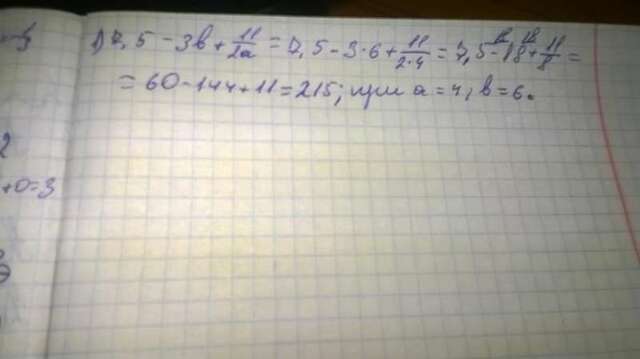 1) 7,5 - 3b + 11/2a = 7,5 - 3·6 + 11/2·4 = 7,5 - 18 + 11/8 =
= 60 - 144 + 11 = 215; при a = 4; b = 6.
2
+0=3